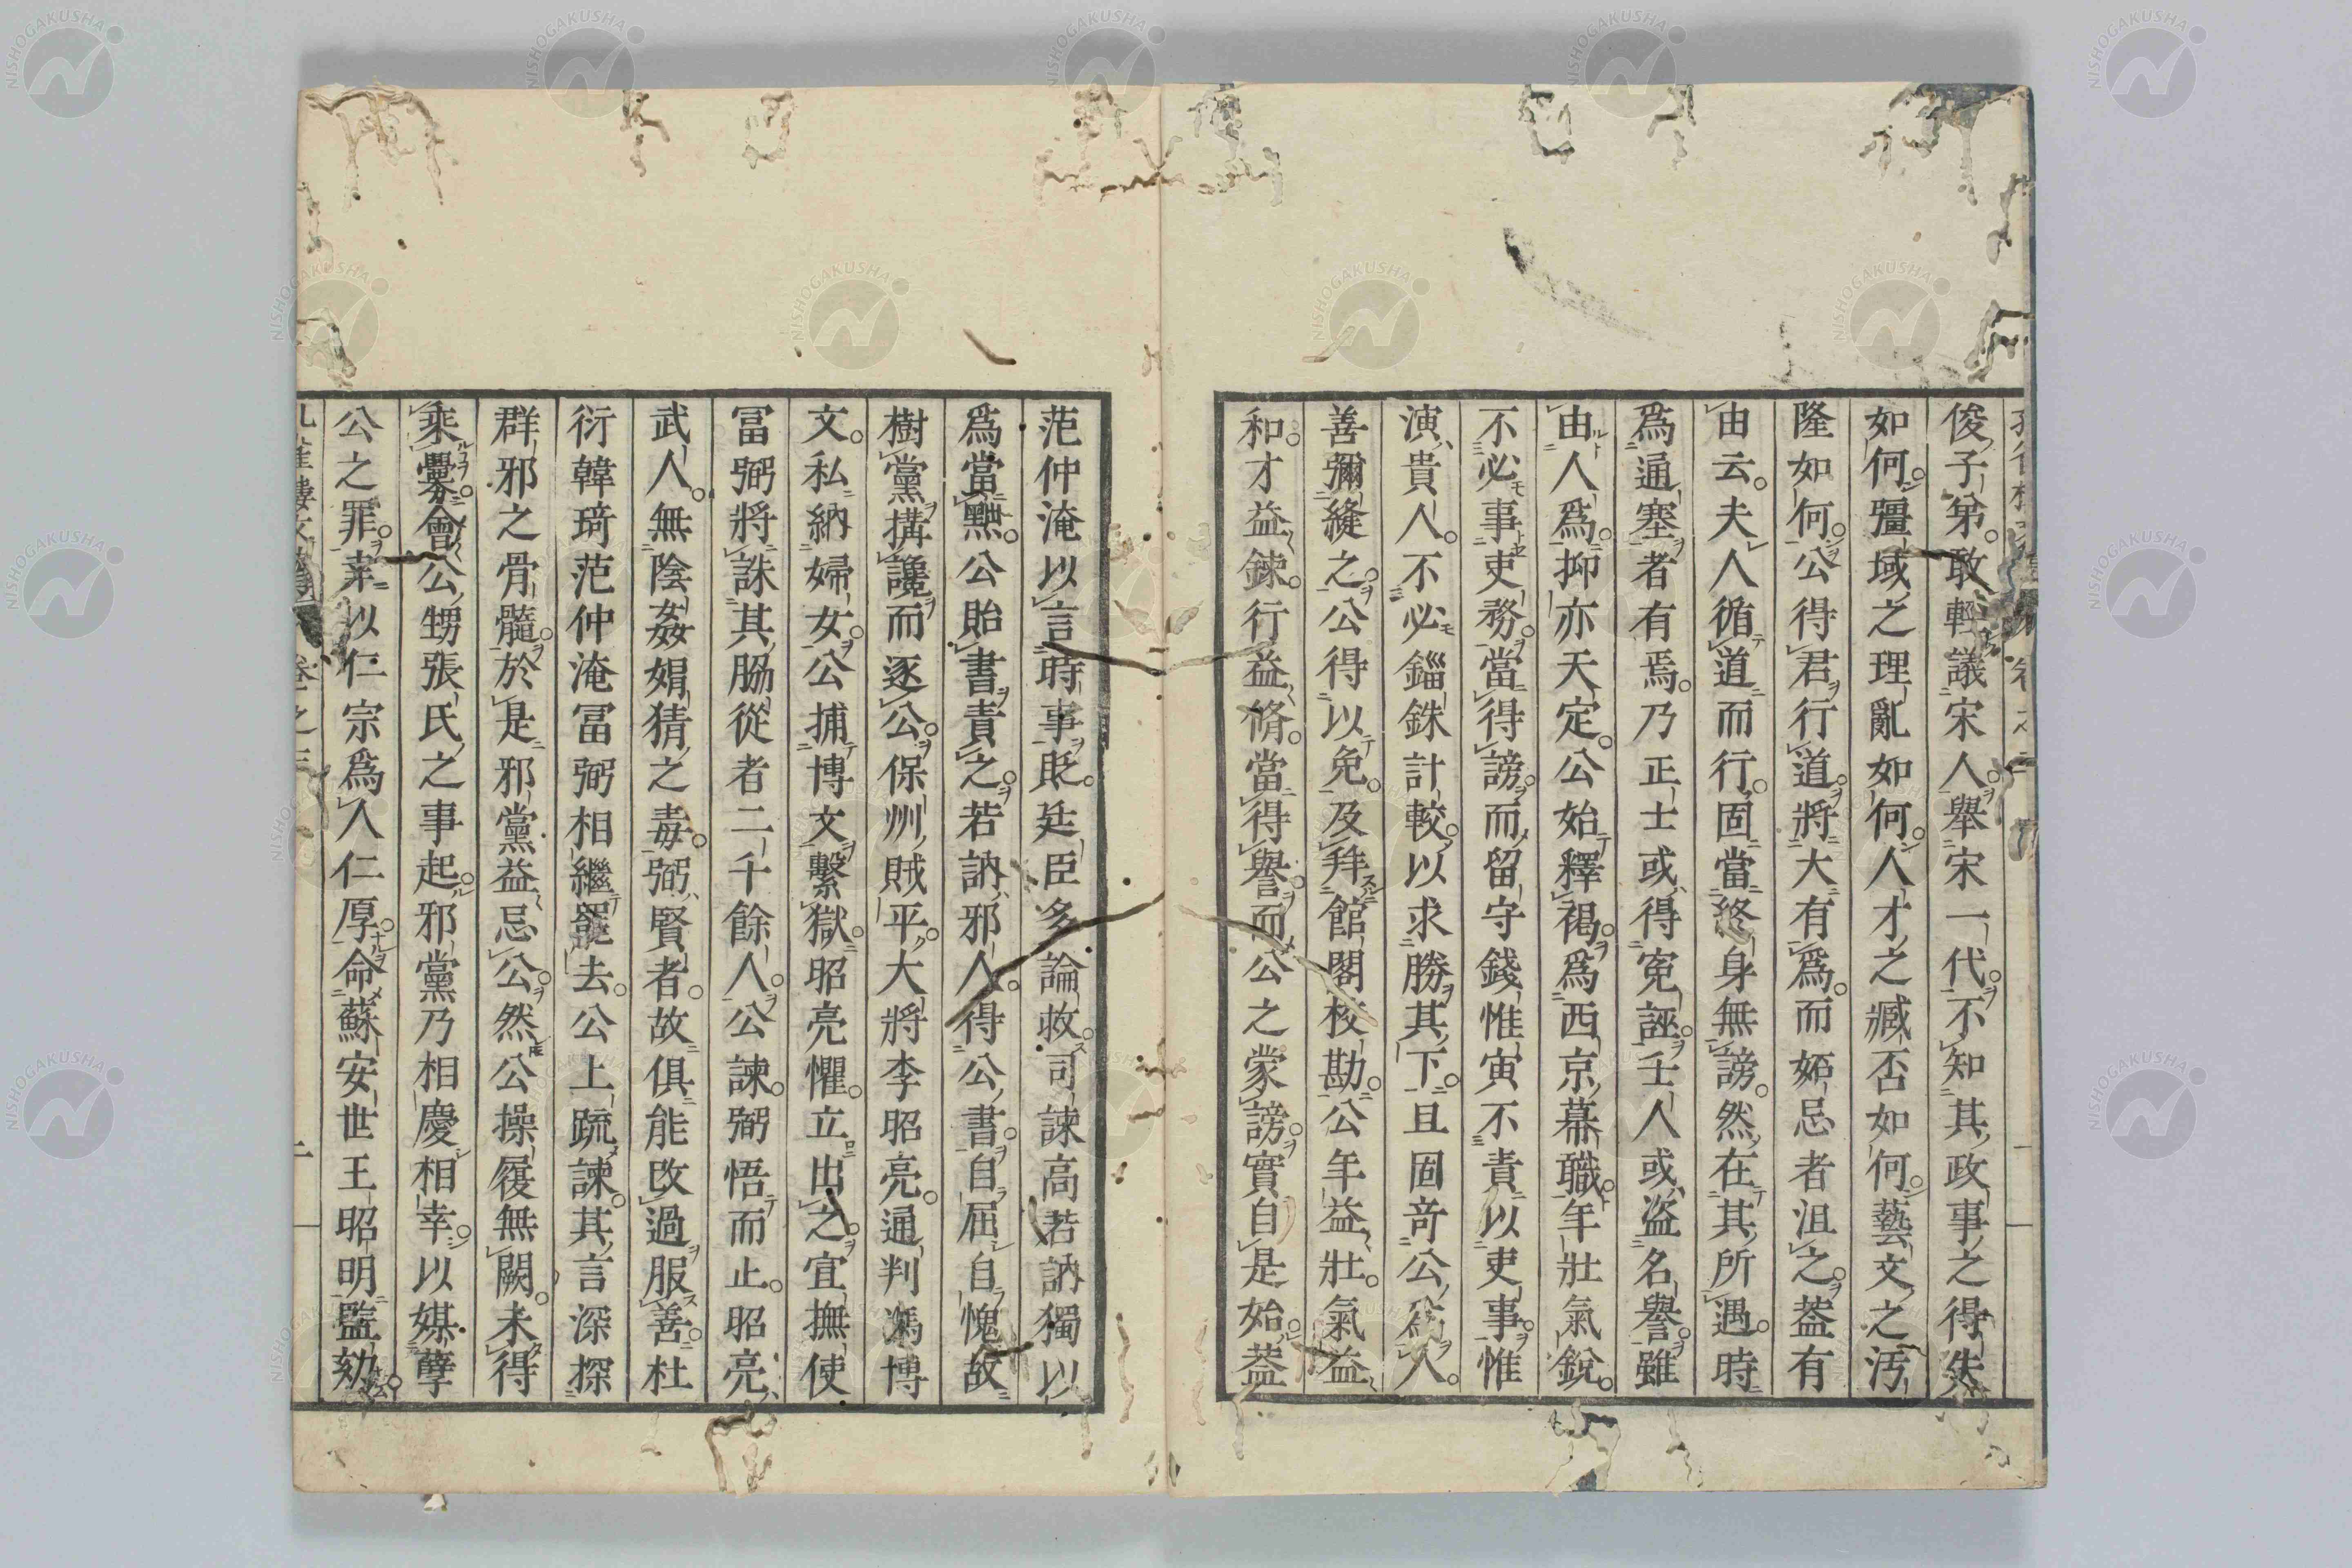 俊子弟敢輕議宋人舉宋一代不知其政事之得失
如何彊域之理亂如何人才之臧否如何藝文之汚
隆如何公得君行道將大有爲而妬忌者沮之蓋有
由云夫人循道而行固當終身無謗然在其所遇時
爲通塞者有焉乃正士或得寃誣壬人或盜名譽雖
由人爲抑亦天定公始釋褐爲西京幕職年壯氣銳
不必事吏務當得謗而留守錢惟寅不責以吏事惟
演貴人不必錙銖計較以求勝其下且固奇公爲人
善彌縫之公得以免及拜館閣校勘公年益壯氣益
和才益鍊行益脩當得譽而公之蒙謗實自是始蓋
范仲淹以言時事貶廷臣多論救司諫高若訥獨以
爲當黜公貽書責之若訥邪人得公書自屈自愧故
樹黨搆讒而逐公保州賊平大將李昭亮通判馮博
文私納婦女公捕博文繫獄昭亮懼立出之宜撫使
冨弼將誅其脇從者二千餘人公諫弼悟而止昭亮
武人無陰姦娟猜之毒弼賢者故俱能改過服善杜
衍韓琦范仲淹冨弼相繼罷去公上疏諫其言深探
群邪之骨髓於是邪黨益忌公然公操履無闕未得
乘釁會公甥張氏之事起邪黨乃相慶相幸以媒孽
公之罪幸以仁宗爲人仁厚命蘇安世王昭明監劾
卷之三